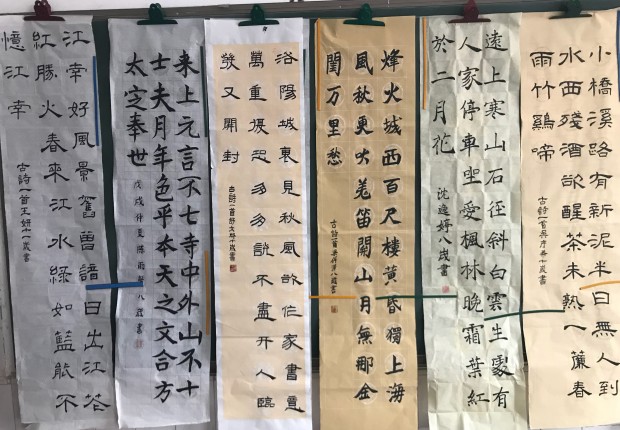 小橋溪路有新泥半日無人到
水西殘酒欲醒茶未熟一簾春
雨竹鷄啼
古詩一首
七歲書
遠上寒山石徑斜白雲生處有
人家停車坐愛楓林晚霜葉紅
於二月花
沈逸婷八歲書
烽火城西百尺樓黃昏獨上海
風秋更吹羌笛關山月無那金
閨万里愁
古詩一首
八歲書
洛陽城裏見秋風欲作家書意
萬重復恐匆匆說不盡行人臨
發又開封
古詩一首
十歲書
来上元言不七寺中外山不十
士夫月年色平本天之文合方
太定奉世
戊戌仲夏陳雨
八歲書
江南好風景舊曾諳日出江花
紅勝火春來江水綠如藍能不
憶江南
古詩一首王妍十歲書